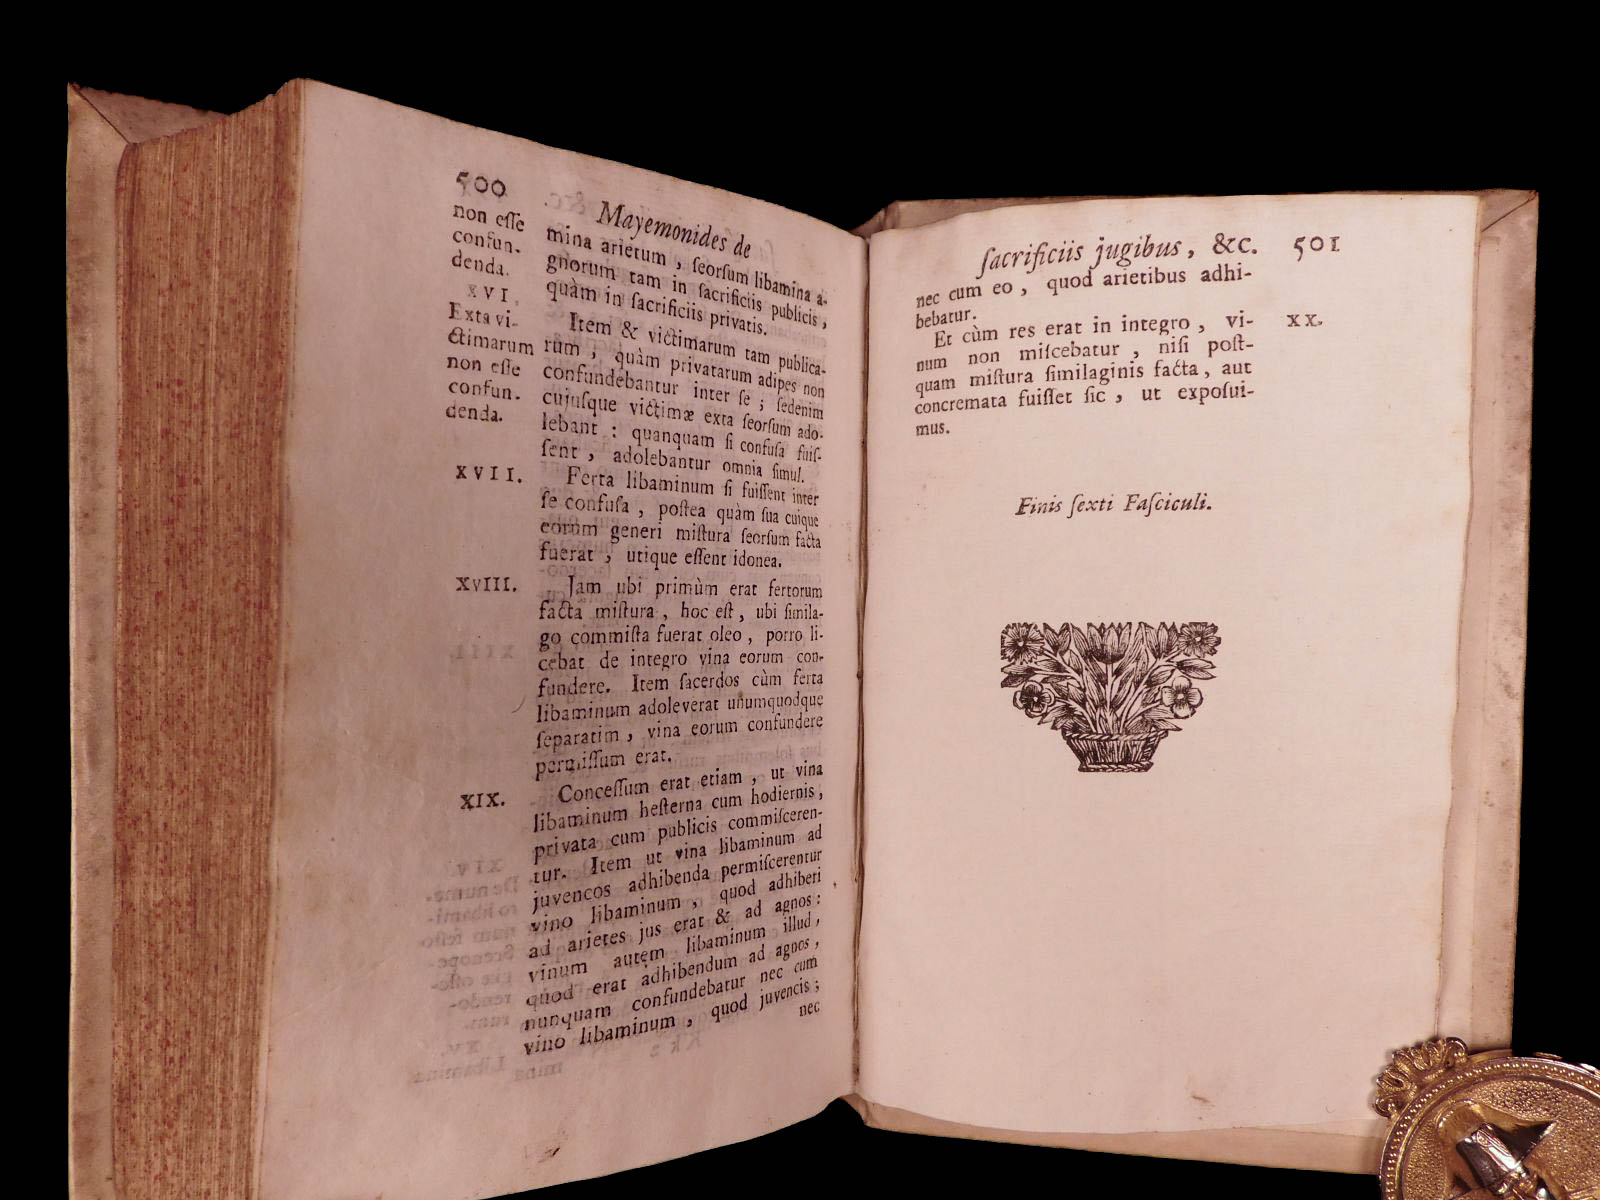 500
Mayemonides de
non eſſe
confun-
denda.
mina arietum, ſeorſum libamina a-
gnorum tam in ſacrificiis publicis,
quàm in ſacrificiis privatis.
XVI.
Exta vi-
ctimarum
non eſſe
confun-
denda.
Item & victimarum tam publica-
rum, quàm privatarum adipes non
confundebantur inter ſe; ſedenim
cujuſque victimæ exta ſeorſum ado-
lebant: quanquam ſi confuſa fuiſ-
ſent, adolebantur omnia ſimul.
XVII.
Ferta libaminum ſi fuiſſent inter
ſe confuſa, poſtea quàm ſua cuique
eorum generi miſtura ſeorſum facta
fuerat, utique eſſent idonea.
XVIII.
Jam ubi primùm erat fertorum
facta miſtura, hoc eſt, ubi ſimila-
go commiſta fuerat oleo, porro li-
cebat de integro vina eorum con-
fundere. Item ſacerdos cùm ferta
libaminum adoleverat unumquodque
ſeparatim, vina eorum confundere
permiſſum erat.
XIX.
Conceſſum erat etiam, ut vina
libaminum heſterna cum hodiernis,
privata cum publicis commiſceren-
tur. Item ut vina libaminum ad
juvencos adhibenda permiſcerentur
vino libaminum, quod adhiberi
ad arietes jus erat & ad agnos:
vinum autem libaminum illud,
quod erat adhibendum ad agnos,
nunquam confundebatur nec cum
vino libaminum, quod juvencis;
nec
ſacrificiis jugibus, &c. 501
nec cum eo, quod arietibus adhi-
bebatur.
XX.
Et cùm res erat in integro, vi-
num non miſcebatur, niſi poſt-
quam miſtura ſimilaginis facta, aut
concremata fuiſſet ſic, ut expoſui-
mus.
Finis ſexti Faſciculi.